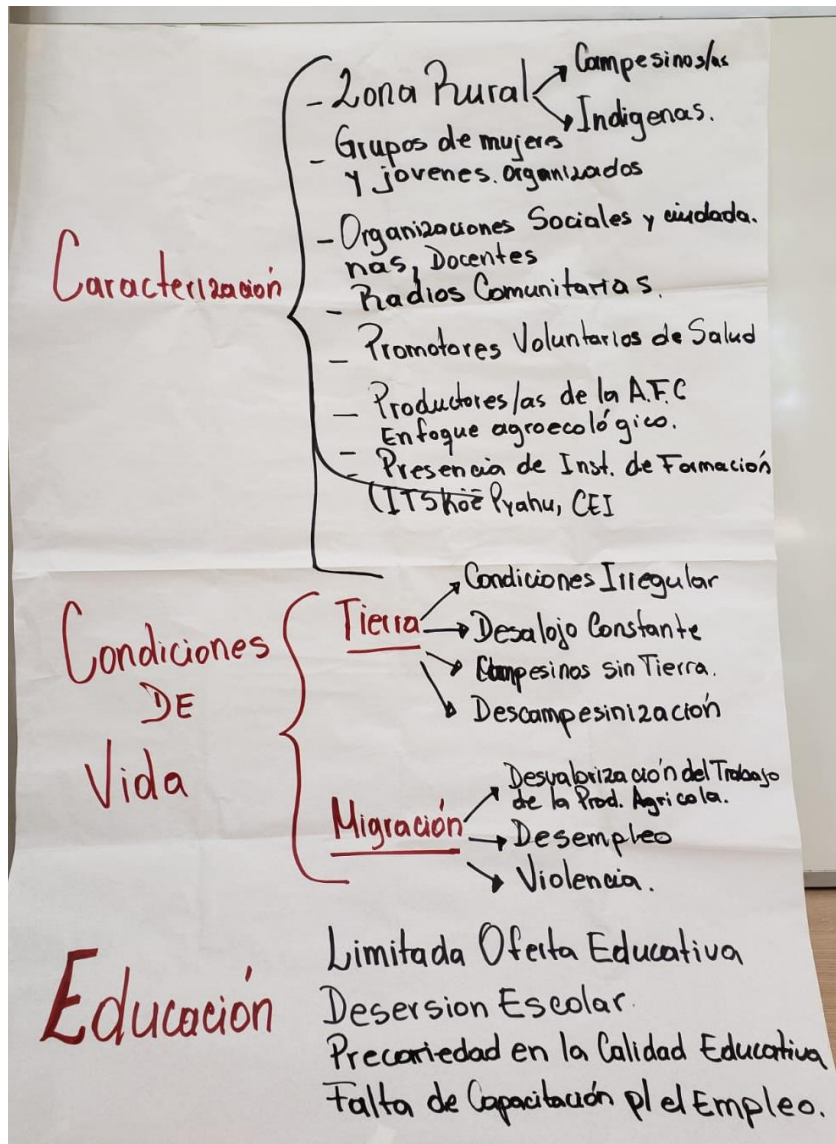 Caracterización
- Zona Rural
Campesinos/as
Indigenas.
- Grupos de mujeres
y jovenes. organizados
- Organizaciones Sociales y ciudada.
nas, Docentes
- Radios Comunitarias.
- Promotores Voluntarios de Salud
- Productores/as de la A.F.C
- Enfoque agroecológico.
- Presencia de Inst. de Formación
(ITS Köẽ Pyahu, CEI
Condiciones
DE
Vida
Tierra
Condiciones Irregular
Desalojo Constante
Campesinos sin Tierra.
Descampesinización
Migración
Desvalorización del Trabajo
de la Prod. Agricola.
Desempleo
Violencia.
Educación
Limitada Oferta Educativa
Desersion Escolar.
Precariedad en la Calidad Educativa
Falta de Capacitación p/ el Empleo.